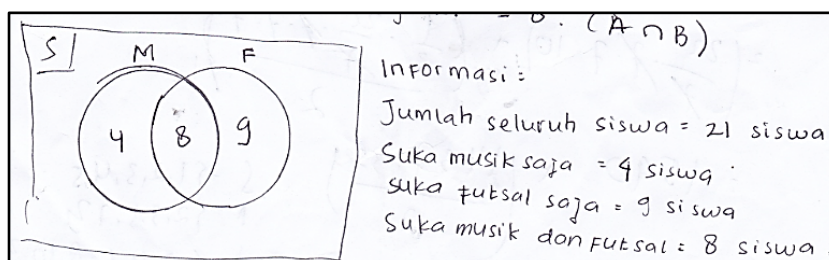 = 8. (A ∩ B)
S M F
4 8 9
Informasi :
Jumlah seluruh siswa = 21 siswa
Suka musik saja = 4 siswa
suka futsal saja = 9 siswa
Suka musik dan Futsal = 8 siswa